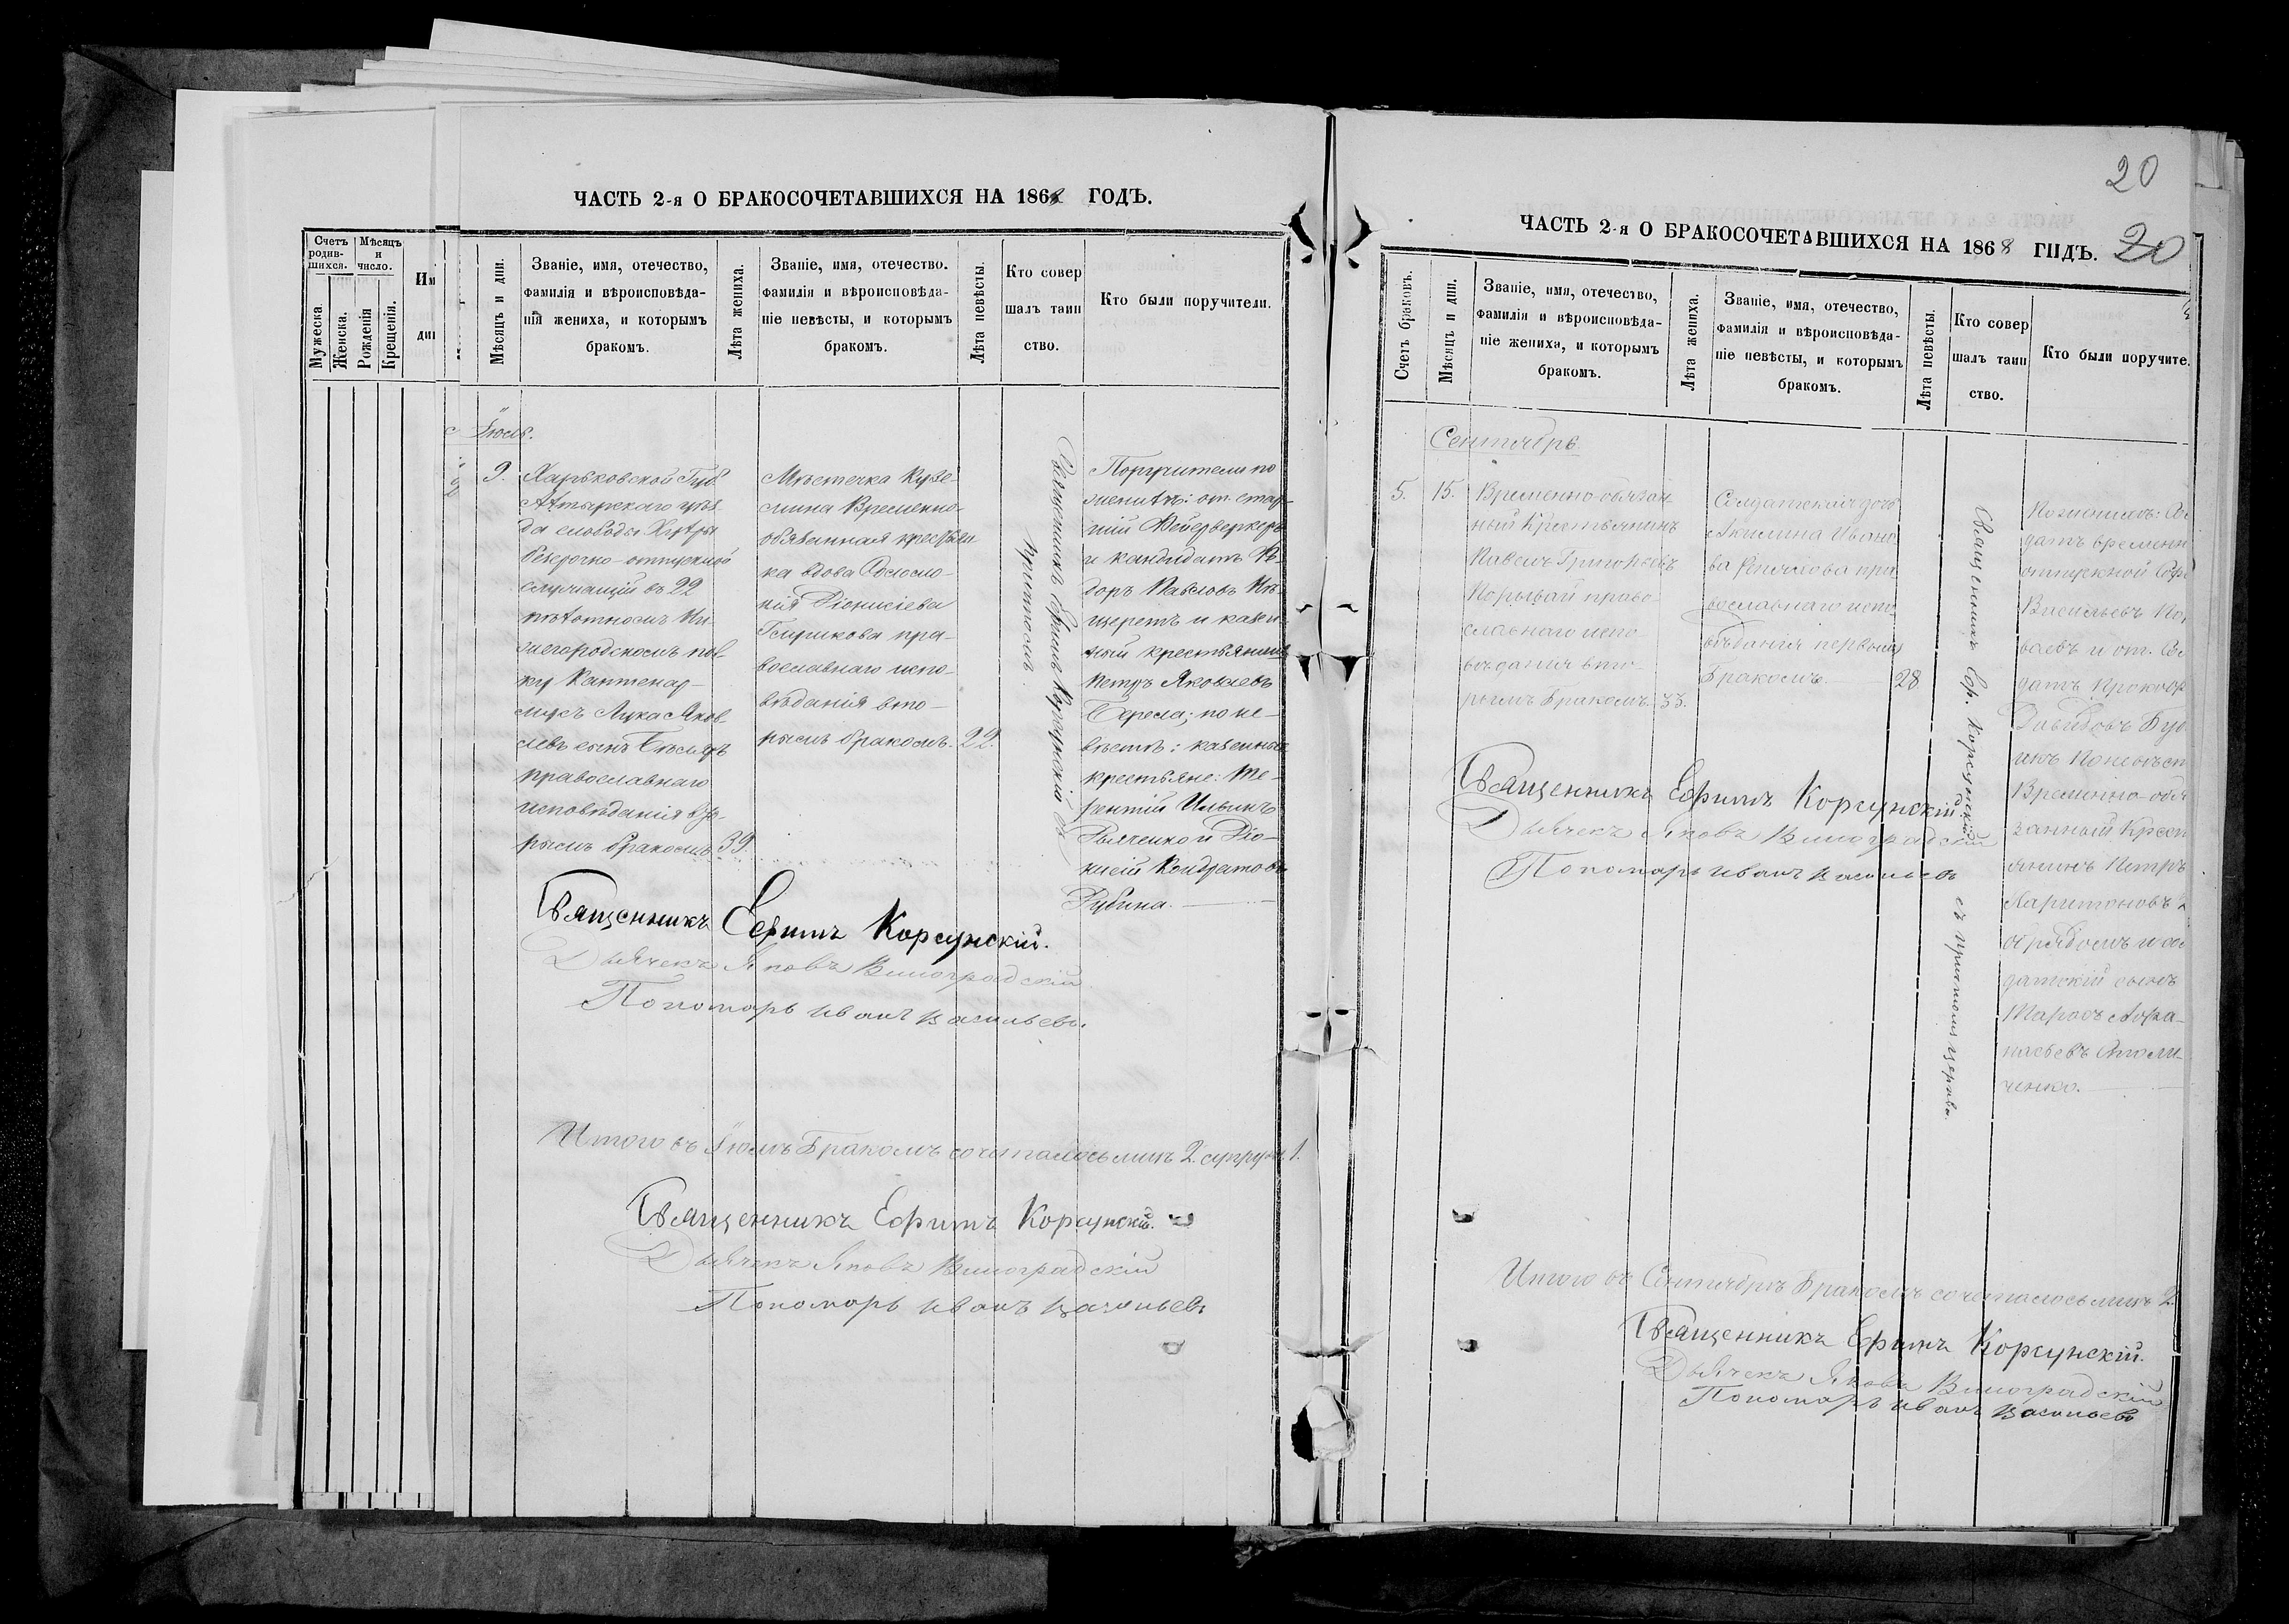 ЧАСТЬ 2-я О БРАКОСОЧЕТАВШИХСЯ НА 1868 ГОДЪ.
Счетъ родив-шихся.
Мѣсяцъ и число.
Мужеска
Женска.
Рожденія
Крещенія.
Мѣсяцъ и дни.
Званіе, имя, отечество,
фамилія и вѣроисповѣда-
нія жениха, и которымъ
бракомъ.
Лѣта жениха.
Званіе, имя, отечество.
фамилія и вѣроисповѣда-
ніе невѣсты, и которымъ
бракомъ.
Лѣта невѣсты.
Кто совер
шалъ таин
ство.
Кто были поручители.
Іюль.
9.
Харьковской Губ
Ахтырскаго уѣз
да слободы
безсрочно-отпускной
служащій въ 22
пѣхотномъ Ни-
жегородскомъ пол-
ку
Лука Яков
левъ сынъ
православнаго
исповѣданія вто-
рымъ бракомъ
39.
Мѣстечка Кузе-
мина Временно-
обязанная крестьян
ка вдова
Діонисіева
пра-
вославнаго испо-
вѣданія вто-
рымъ бракомъ.
22.
Священникъ Ефимъ Корсунскій съ
причтомъ.
Поручители по
женихѣ: от. стар-
шій Фейерверкеръ
и кандидатъ Е-
горъ Павловъ
и казен
ный крестьянинъ
Петръ Яковлевъ
по не-
вѣстѣ: казенные
крестьяне: Те-
рентій Ильинъ
и Діо-
нисій Кондратовъ
Рубина.
Священникъ Ефимъ Корсунскій.
Дьячекъ Яковъ Виноградскій
Пономарь Иванъ Васильевъ.
Итого въ Іюлѣ Бракомъ сочеталось лицъ 2. супруж. 1.
Священникъ Ефимъ Корсунскій.
Дьячекъ Яковъ Виноградскій
Пономарь Иванъ Васильевъ
20
ЧАСТЬ 2-я О БРАКОСОЧЕТАВШИХСЯ НА 1868 ГОДЪ.
20
Счетъ браковъ.
Мѣсяцъ и дни.
Званіе, имя, отечество,
фамилія и вѣроисповѣда-
ніе жениха, и которымъ
бракомъ.
Лѣта жениха.
Званіе, имя, отечество,
фамилія и вѣроисповѣда-
ніе невѣсты, и которымъ
бракомъ.
Лѣта невѣсты.
Кто совер
шалъ таин
ство.
Кто были поручите.
Сентябрь
5.
15.
Временно-обязан
ный Крестьянинъ
Павелъ Григорьевъ
Порывай право-
славнаго испо-
вѣданія вто-
рымъ Бракомъ.
33.
Солдатская дочь
Акилина Ивано
ва пра
вославнаго испо
вѣданія первымъ
Бракомъ.
28.
Священникъ Еф. Корсунскій съ причтомъ церкви.
По женихѣ: Сол
датъ временно
отпускной
Васильевъ По
ваевъ и от. Сол
датъ Прокоф
Давидовъ
По невѣст
Временно-обя
занный Крест
янинъ Петръ
Харитоновъ
и сол
датскій сынъ
Тарасъ Афа-
насьевъ
ченко.
Священникъ Ефимъ Корсунскій
Дьячекъ Яковъ Виноградскій
Пономарь Иванъ Васильевъ
Итого въ Сентябрѣ Бракомъ сочеталось лицъ 2.
Священникъ Ефимъ Корсунскій.
Дьячекъ Яковъ Виноградскій
Пономарь Иванъ Васильевъ